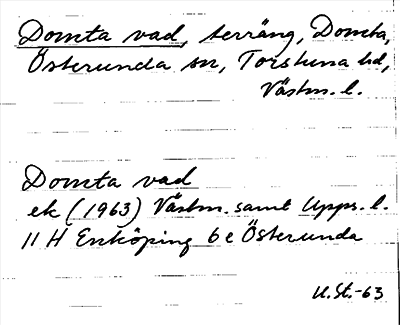 Domta vad, terräng, Domta,
Österunda sn, Torstuna hd,
Västm. l.
Domta vad
ek (1963) Västm. samt Upps. l.
11 H Enköping 6 e Österunda
U.St.-63